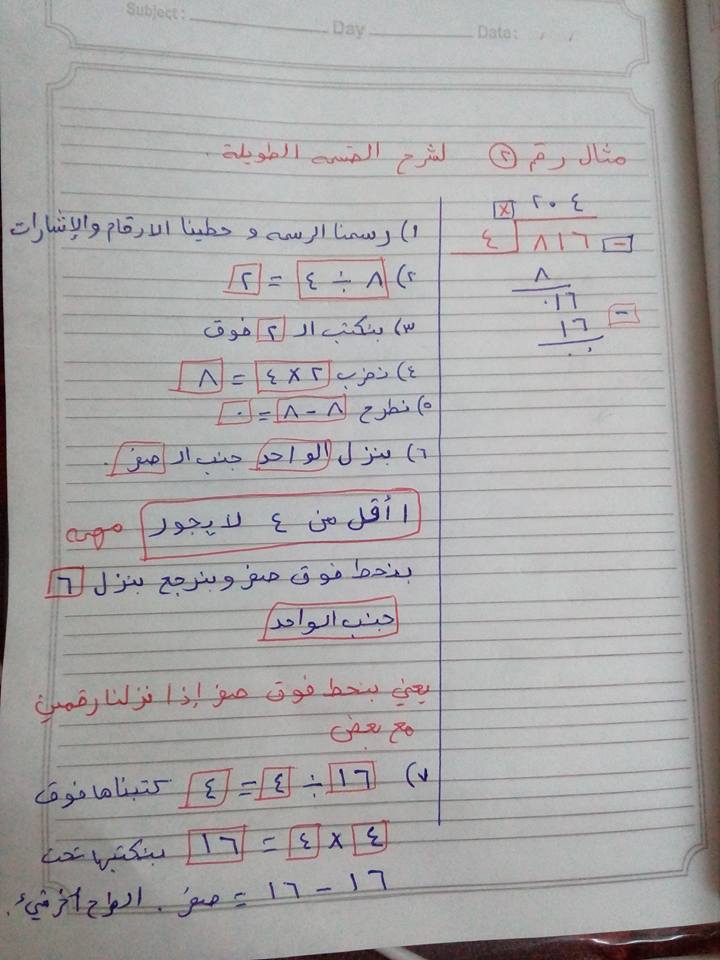 Subject: Day Date: / /
مثال رقم (٢) لشرح القسمه الطويلة.
٢٠٤
×
٤ ٨١٦ -
٨
٠١٦
١٦ -
٠٠
١) رسمنا الرسمه و حطينا الارقام والإشارات
٢) ٨ ÷ ٤ = ٢
٣) بنكتب الـ ٢ فوق
٤) نضرب ٢ × ٤ = ٨
٥) نطرح ٨ - ٨ = ٠
٦) بنزل الواحد جنب الـ صفر.
١ أقل من ٤ لا يجوز مهمه
بنحط فوق صفر وبنرجع بنزل ٦
جنب الواحد
يعني بنحط فوق صفر إذا نزلنا رقمين
مع بعض
٧) ١٦ ÷ ٤ = ٤ كتبناها فوق
٤ × ٤ = ١٦ بنكتبها تحت
١٦ - ١٦ = صفر. الطرح آخر شيء.